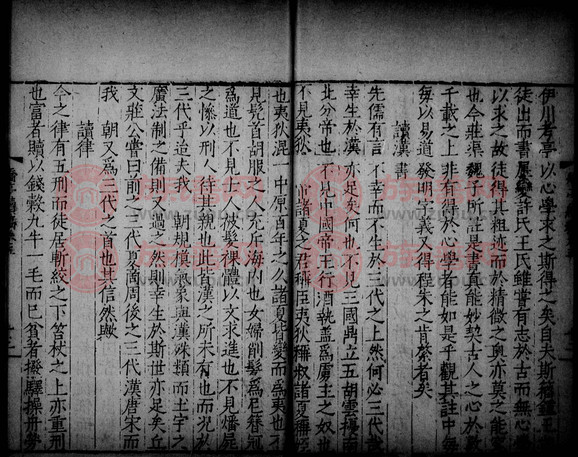 伊川考亭以心學求之斯得之矣自夫斯籍
徒出而書屢變許氏王氏雖嘗有志於古而無心學
以求之故徒得其粗迹而於精微之奧亦莫之能
也今莊渠魏子所註是書真能妙契古人之心於數
千載之上非有得於心學者能如是乎觀其註中每
每以易道發明字義又得程朱之肯綮者矣
讀漢書
先儒有言不幸而不生於三代之上然何必三代
幸生於漢亦足矣何也不見三國鼎立五胡雲擾南
北分帝也不見中國帝王行酒執盖爲虜主之奴也
不見夷狄諸夏之君稱臣夷狄稱叔諸夏稱姪
也夷狄混一中原百年之久諸夏皆變而爲夷也不
見髡首胡服之人充斥海内也女婦削髮爲尼簪冠
爲道也不見士人被髮裸體以文求進也不見燔屍
之慘以刑人待其親也此皆漢之所未有也而况於
三代乎迨夫我
朝規模氣象與漢殊類而土宇之
廣法制之備則又過之然則幸生於斯世亦足矣丘
文莊公嘗曰前之三代夏商周後之三代漢唐宋而
我
朝又爲三代之首也其信然歟
讀律
今之律有五刑而徒居斬絞之下笞杖之上亦重刑
也富者贖以錢數九牛一毛而已貧者撥驛操舟勞